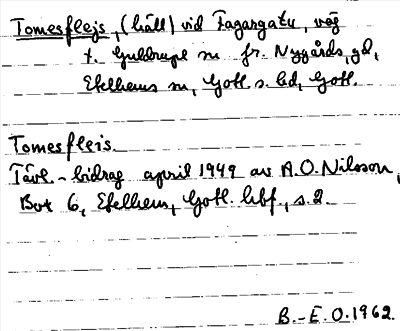 Tomesflejs, (häll) vid Fagargatu, väg
t. Guldrupe sn fr. Nygårds, gd,
Etelhems sn, Gotl. s. hd, Gotl.
Tomesflejs.
Tävl.-bidrag april 1949 av A.O. Nilsson,
Box 6, Etelhem, Gotl. hbf., s.2.
B.-E.O. 1962.